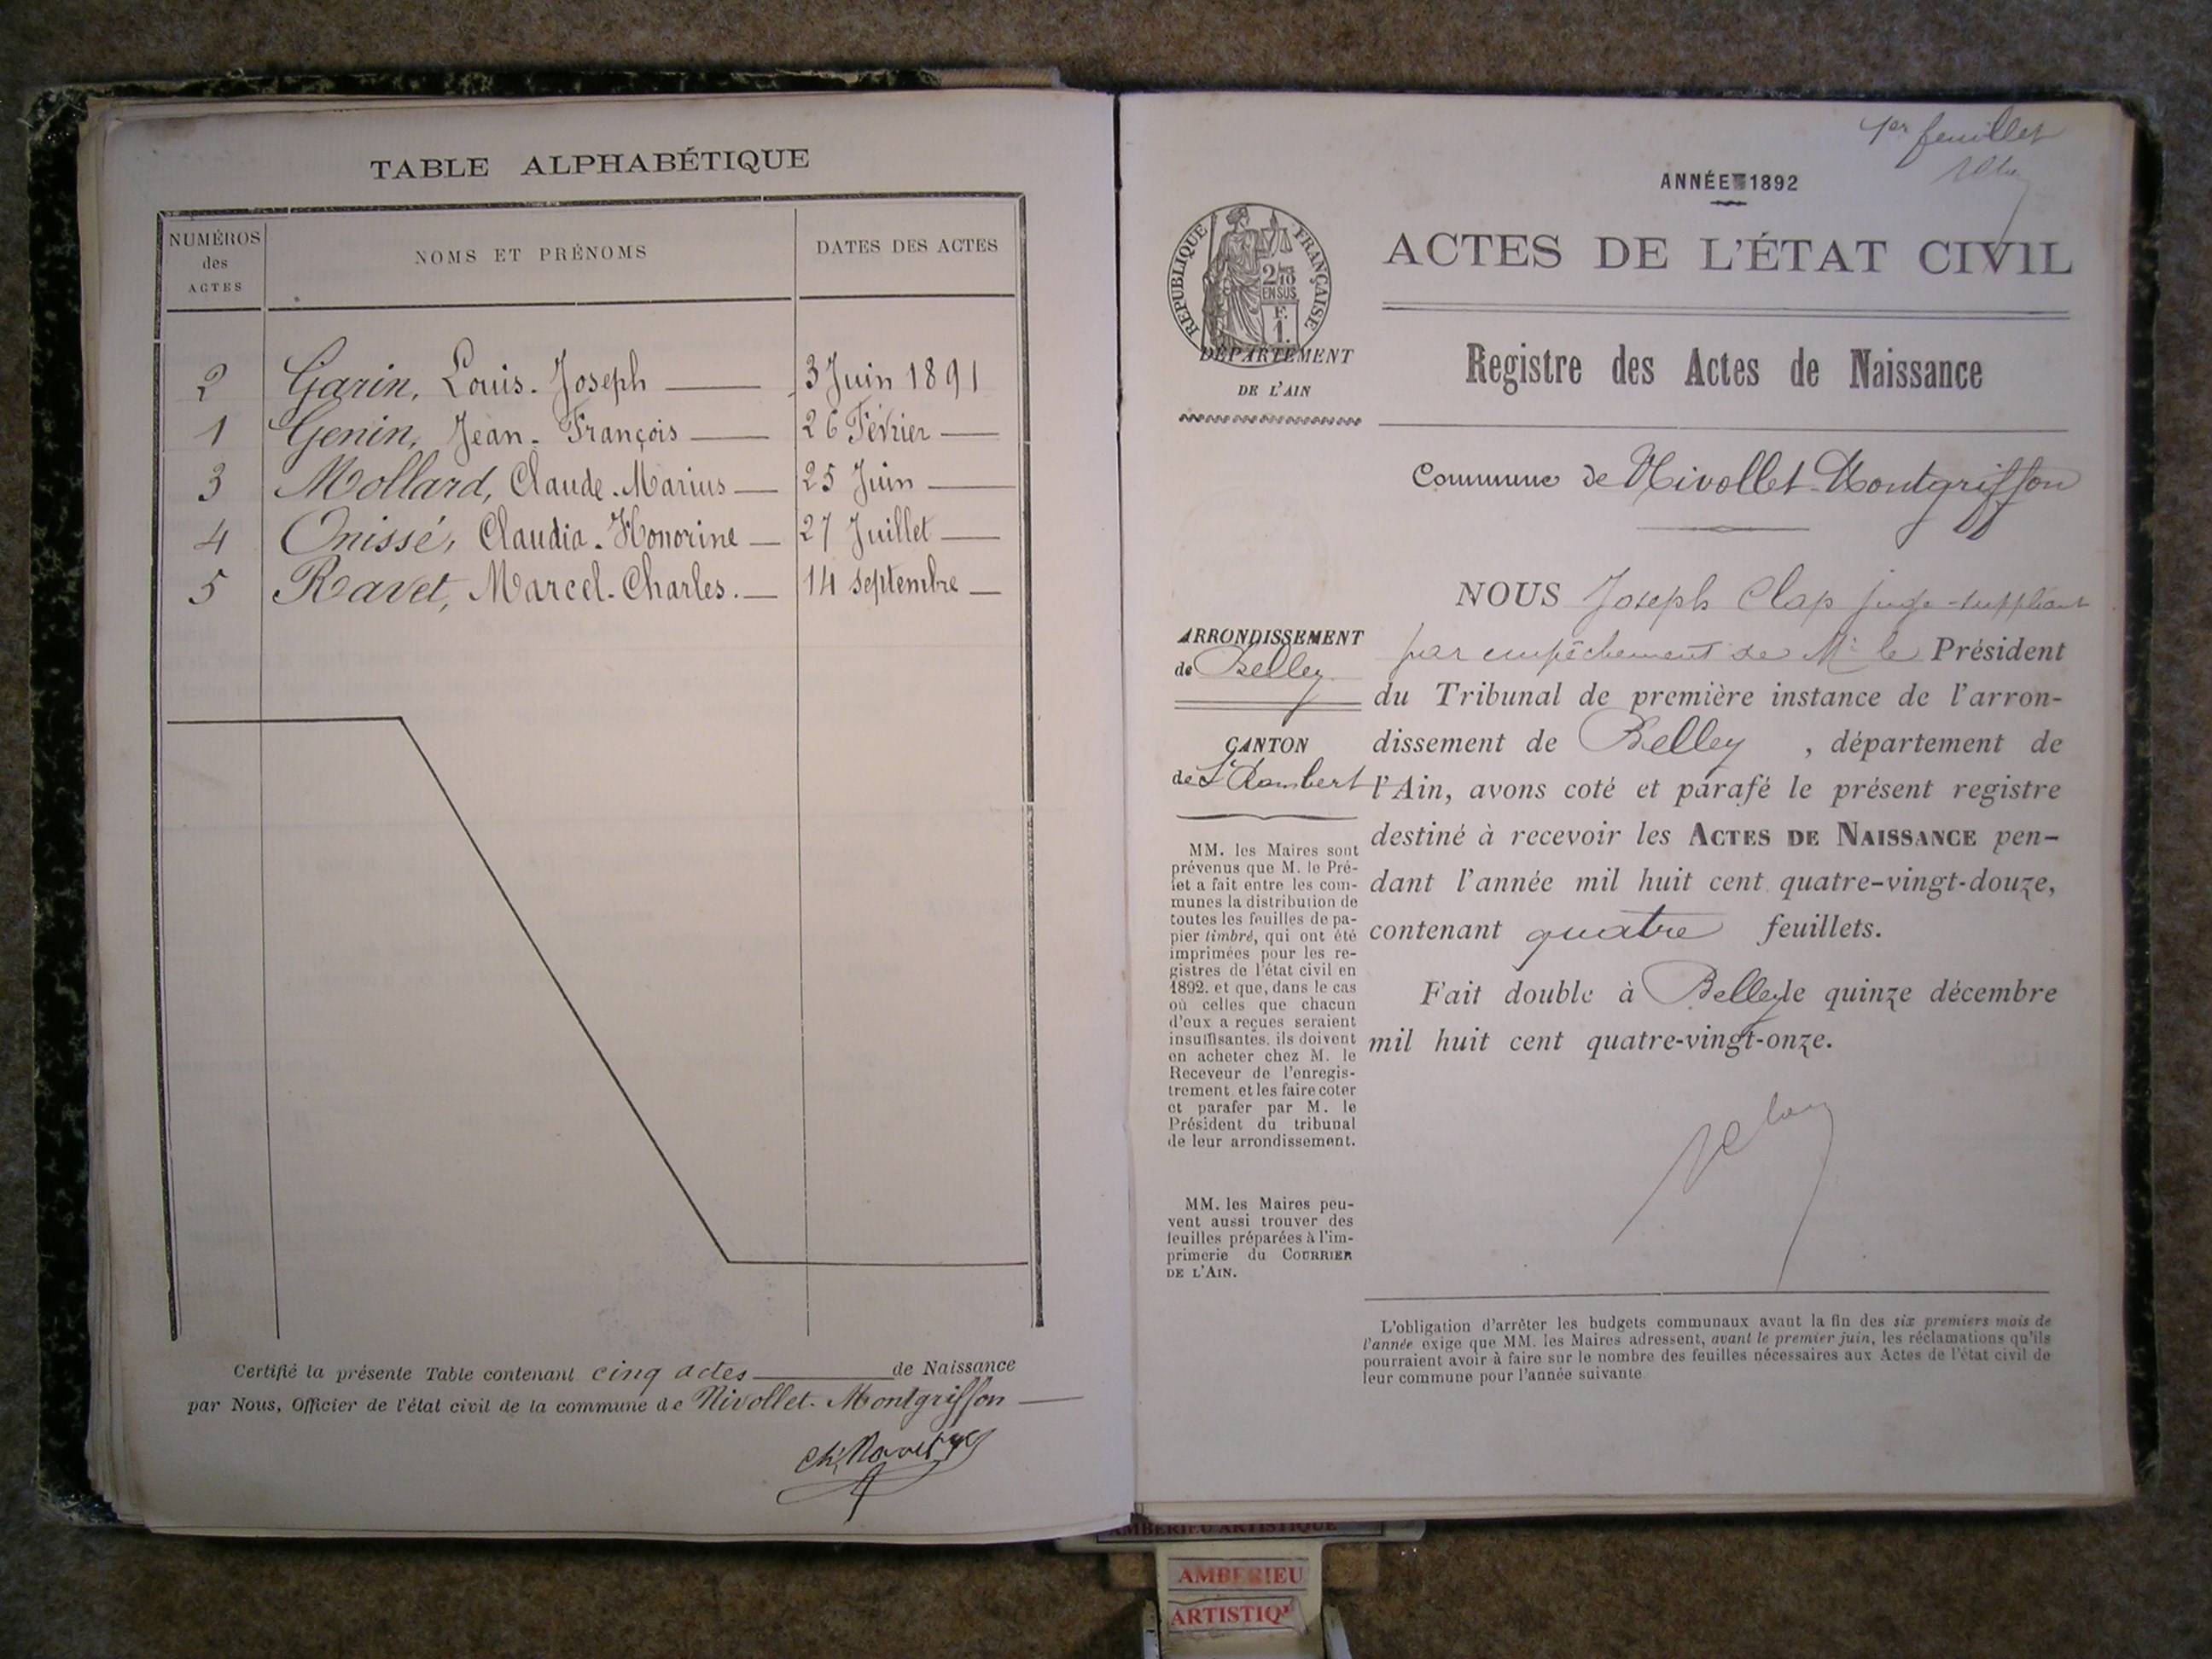 TABLE ALPHABÉTIQUE
NUMÉROS
des
ACTES
NOMS ET PRÉNOMS
DATES DES ACTES
2 Garin, Louis-Joseph 3 Juin 1891
1 Genin, Jean-François 26 Février
3 Mollard, Claude-Marius 25 Juin
4 Onissé, Claudia-Honorine 27 Juillet
5 Ravet, Marcel-Charles. 14 septembre
Certifié la présente Table contenant cinq actes de Naissance
par Nous, Officier de l'état civil de la commune de Nivollet-Montgriffon
1er feuillet
ANNÉE 1892
RÉPUBLIQUE FRANÇAISE
2/10
EN SUS
F.
1.
ACTES DE L'ÉTAT CIVIL
DÉPARTEMENT
DE L'AIN
Registre des Actes de Naissance
Commune de Nivollet-Montgriffon
ARRONDISSEMENT
de Belley
CANTON
de St Rambert
MM. les Maires sont
prévenus que M. le Pré-
fet a fait entre les com-
munes la distribution de
toutes les feuilles de pa-
pier timbré, qui ont été
imprimées pour les re-
gistres de l'état civil en
1892. et que, dans le cas
où celles que chacun
d'eux a reçues seraient
insuffisantes, ils doivent
en acheter chez M. le
Receveur de l'enregis-
trement et les faire coter
et parafer par M. le
Président du tribunal
de leur arrondissement.
MM. les Maires peu-
vent aussi trouver des
feuilles préparées à l'im-
primerie du COURRIER
DE L'AIN.
NOUS Joseph Clap juge-suppléant
par empêchement de Mr le Président
du Tribunal de première instance de l'arron-
dissement de Belley, département de
l'Ain, avons coté et parafé le présent registre
destiné à recevoir les ACTES DE NAISSANCE pen-
dant l'année mil huit cent quatre-vingt-douze,
contenant quatre feuillets.
Fait double à Belley le quinze décembre
mil huit cent quatre-vingt-onze.
L'obligation d'arrêter les budgets communaux avant la fin des six premiers mois de
l'année exige que MM. les Maires adressent, avant le premier juin, les réclamations qu'ils
pourraient avoir à faire sur le nombre des feuilles nécessaires aux Actes de l'état civil de
leur commune pour l'année suivante
AMBERIEU ARTISTIQUE
AMBERIEU
ARTISTIQ